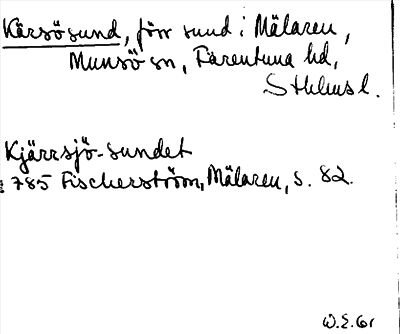 Kärsösund, förr sund i Mälaren,
Munsö sn, Färentuna hd,
Sthlms l.
Kjärrsjö-sundet
1785 Fischerström, Mälaren, s. 82.
W.E. 61